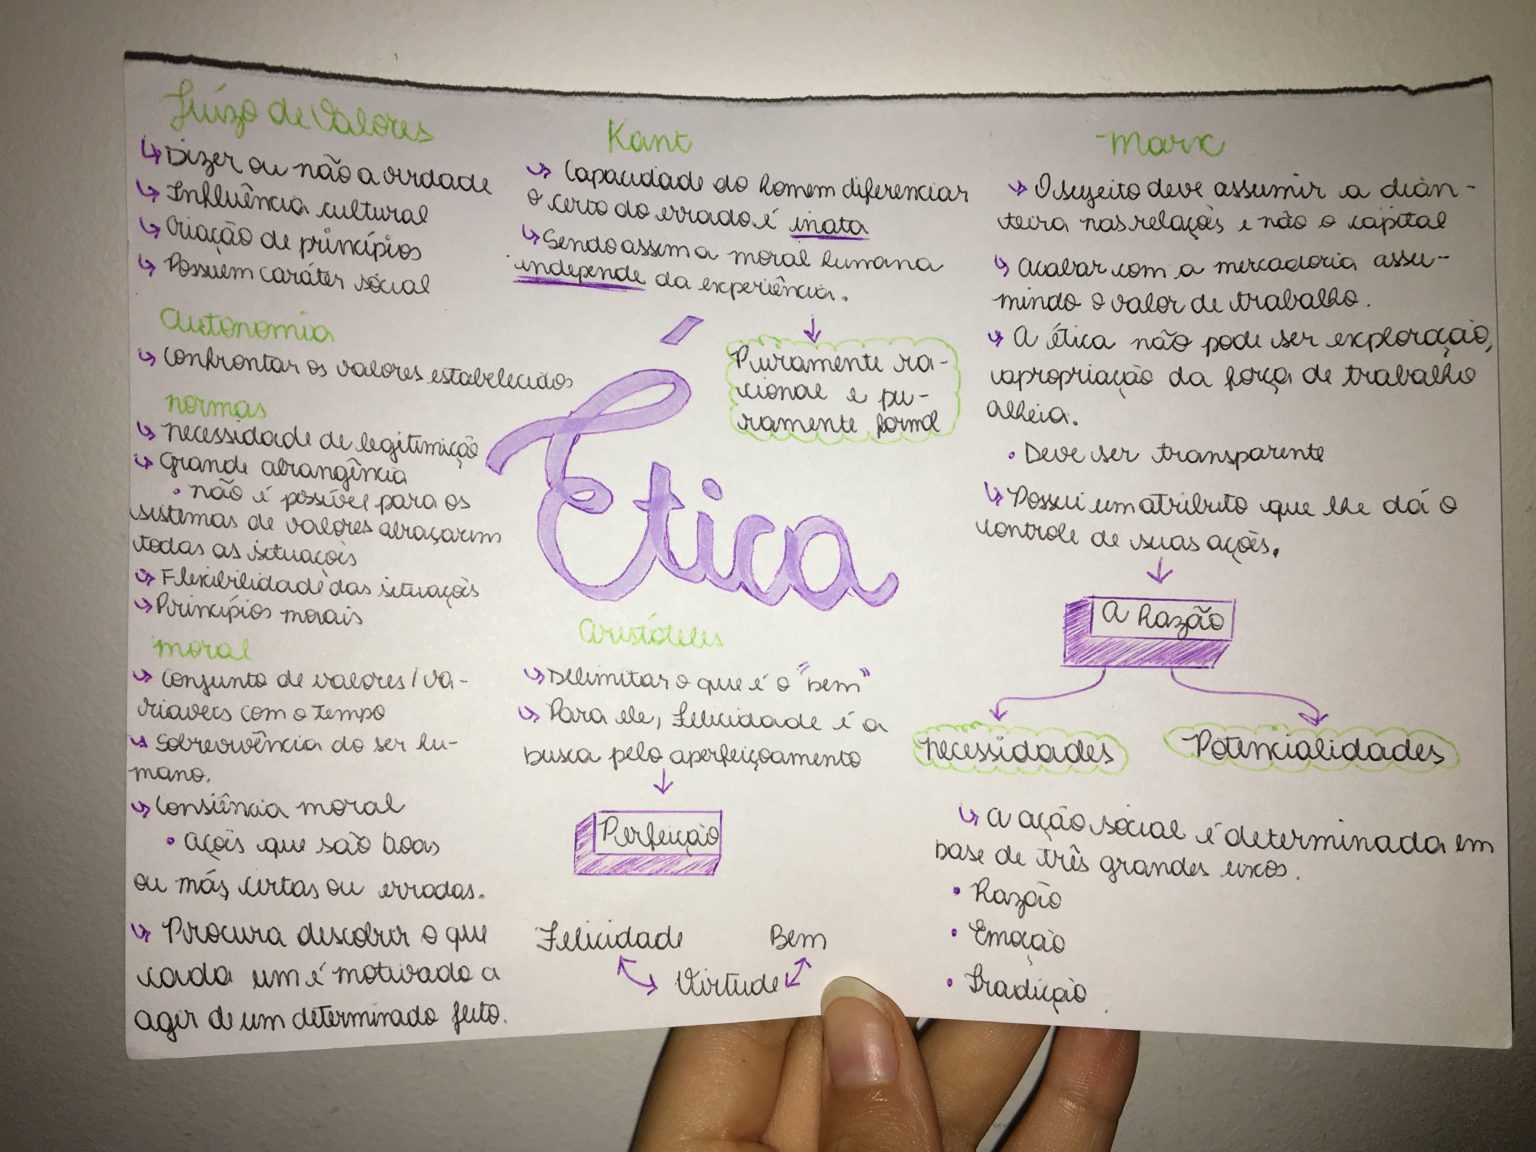 Juízo de Valores
↳ Dizer ou não a verdade
↳ Influência cultural
↳ Criação de princípios
↳ Possuem caráter social
Autonomia
↳ Confrontar os valores estabelecidos
normas
↳ necessidade de legitimição
↳ Grande abrangência
• não é possível para os
sistemas de valores abraçarem
todas as situações
↳ Flexibilidade das situações
↳ Princípios morais
moral
↳ Conjunto de valores / va-
riaveis com o tempo
↳ Sobrevivência do ser hu-
mano.
↳ Consiência moral
• Ações que são boas
ou más, certas ou erradas.
↳ Procura descobrir o que
cada um é motivado a
agir de um determinado feito.
Kant
↳ Capacidade do homem diferenciar
o certo do errado é inata
↳ Sendo assim a moral humana
independe da experiência.
Puramente ra-
cional e pu-
ramente formal
Ética
Aristóteles
↳ Delimitar o que é o "bem"
↳ Para ele, Felicidade é a
busca pelo aperfeiçoamento
Perfeição
Felicidade Bem
Virtude
Marx
↳ O sujeito deve assumir a dian-
teira nas relações e não o capital
↳ Acabar com a mercadoria assu-
mindo o valor de trabalho.
↳ A ética não pode ser exploração,
apropriação da força de trabalho
alheia.
• Deve ser transparente
↳ Possui um atributo que lhe dá o
controle de suas ações.
A Razão
necessidades Potencialidades
↳ A ação social é determinada em
base de três grandes eixos.
• Razão
• Emoção
• Tradição